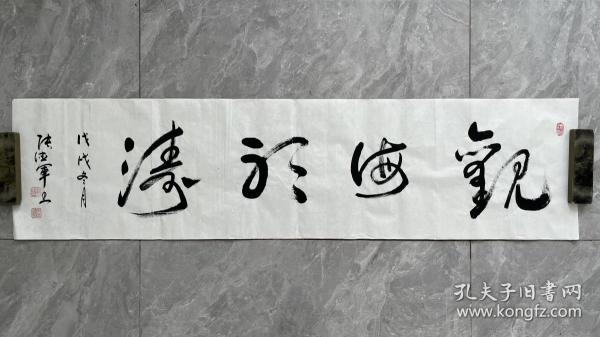 觀海聽濤
戊戌冬月
孔夫子旧书网
www.kongfz.com